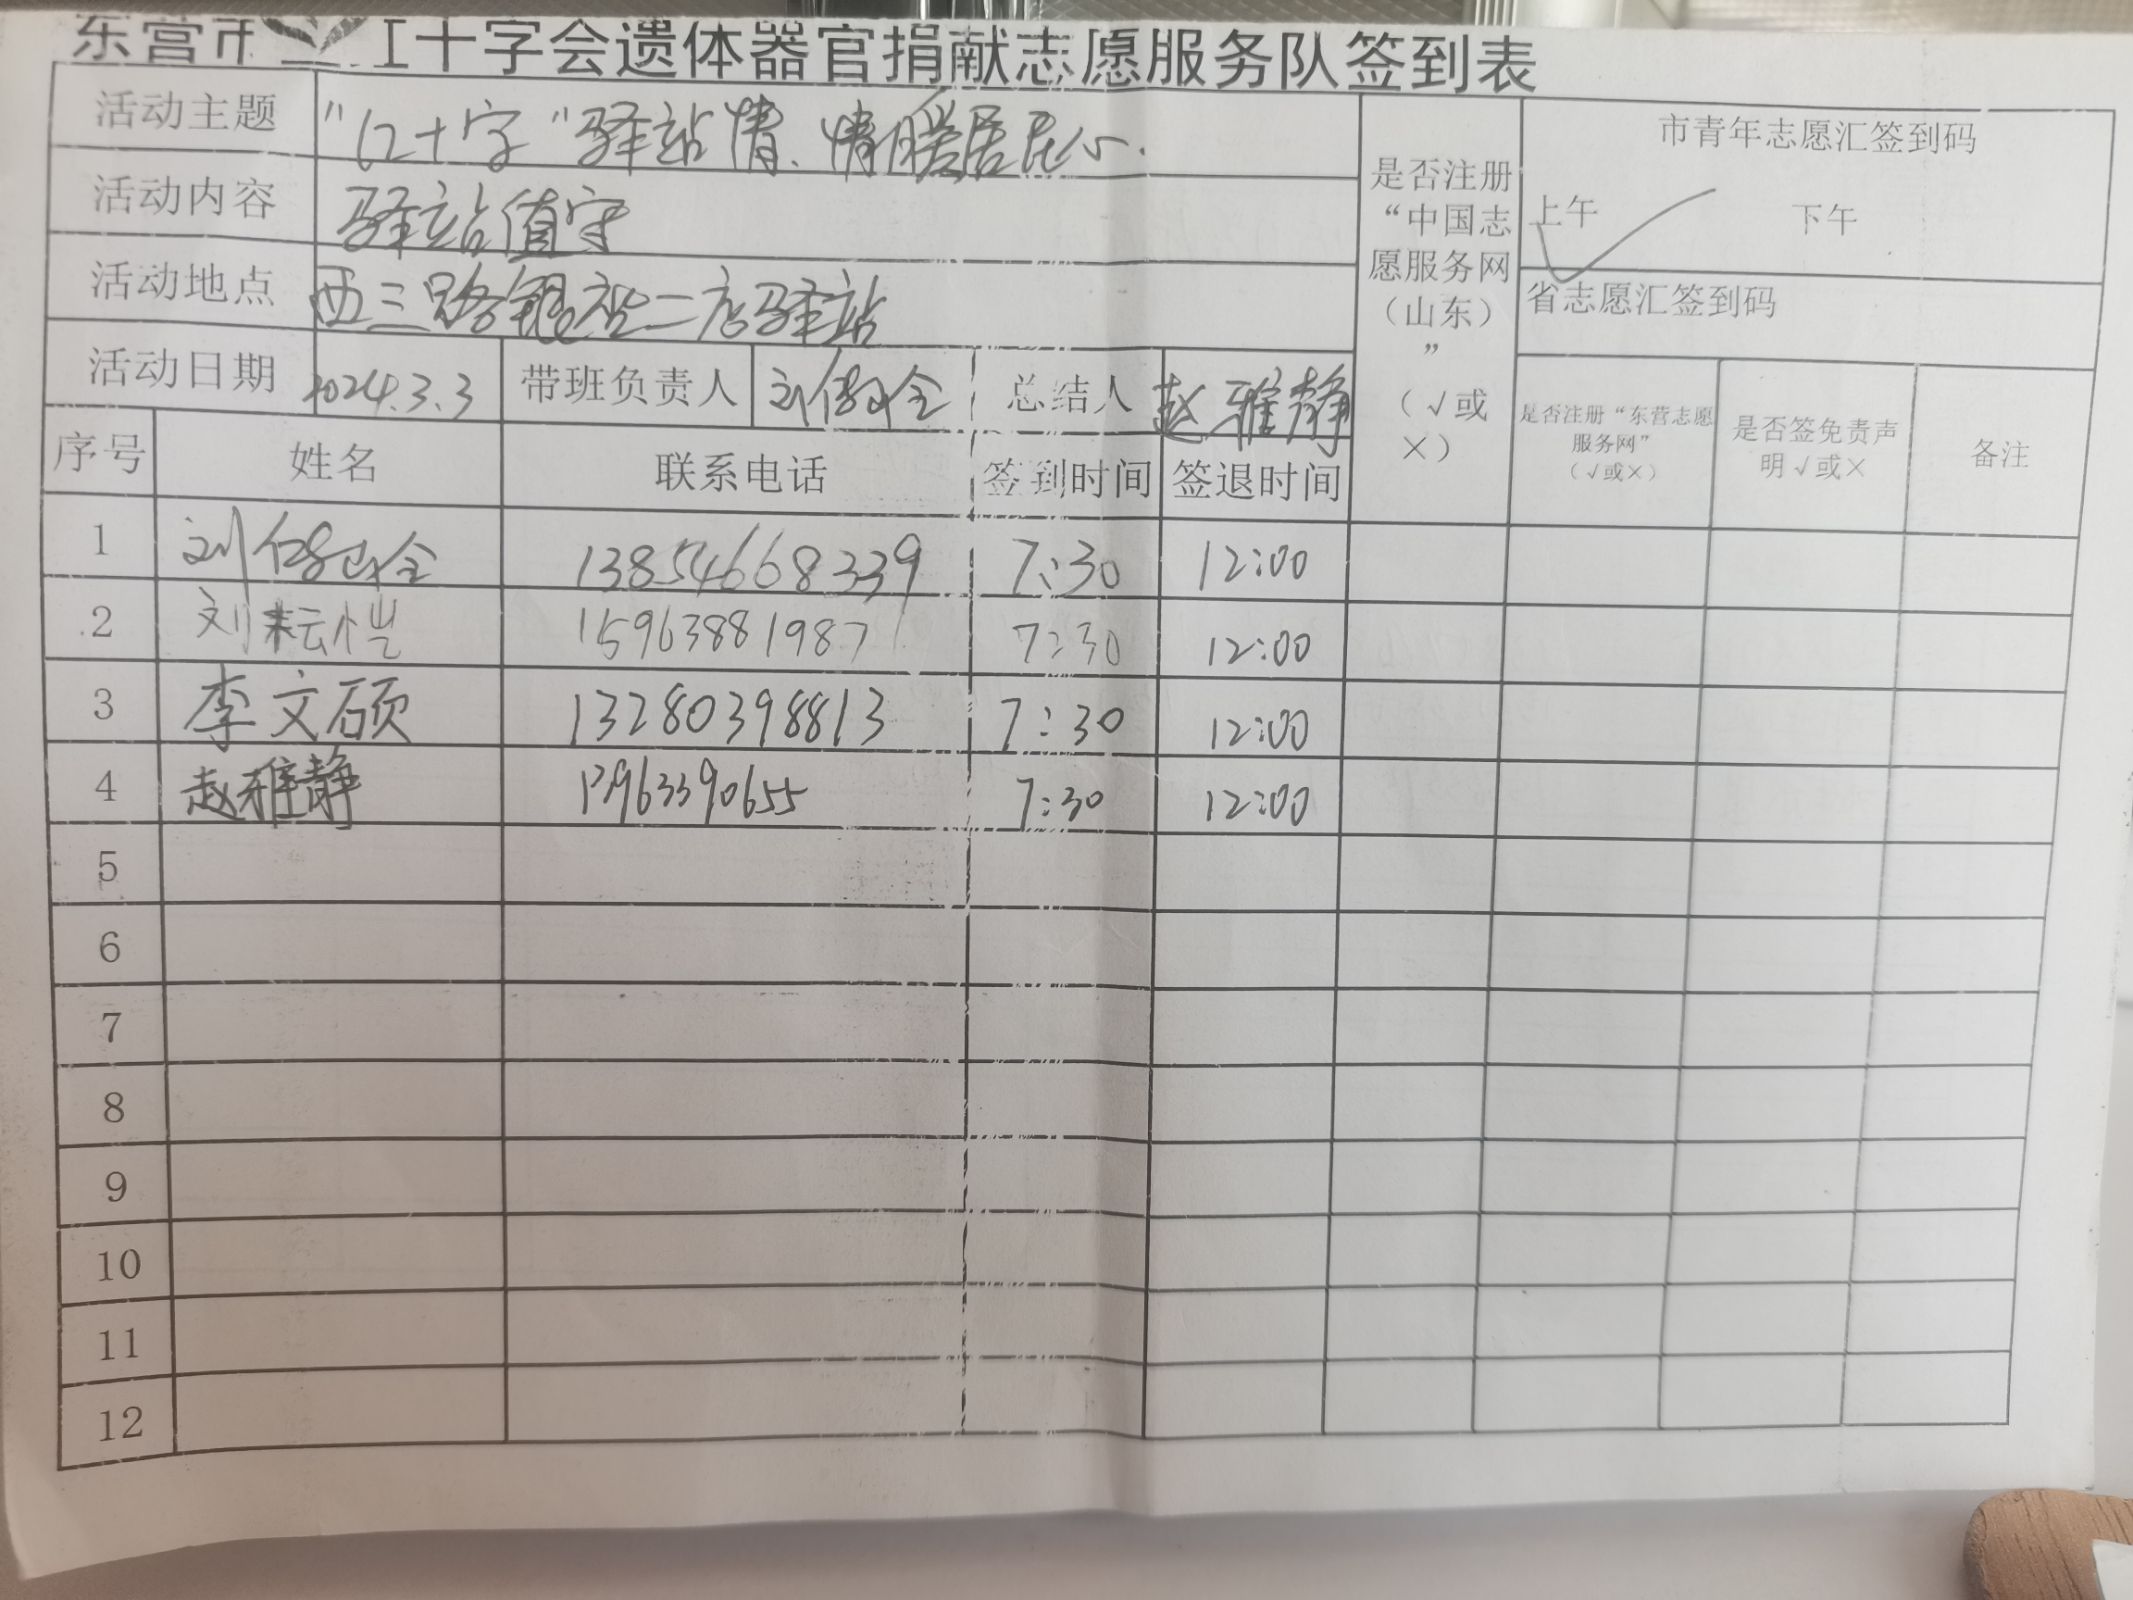 东营市红十字会遗体器官捐献志愿服务队签到表
活动主题 "红十字"驿站情、情暖居民心.
活动内容 驿站值守
活动地点 西三路银座二店驿站
活动日期 2024.3.3 带班负责人 刘俊全 总结人 赵雅静
是否注册
“中国志
愿服务网
（山东）
”
（√或
×）
市青年志愿汇签到码
上午 下午
省志愿汇签到码
序号 姓名 联系电话 签到时间 签退时间
是否注册“东营志愿
服务网”
（√或×）
是否签免责声
明√或×
备注
1 刘 全 13854668339 7:30 12:00
2 刘耘恺 15963881987 7:30 12:00
3 李文硕 13280398813 7:30 12:00
4 赵雅静 13963390655 7:30 12:00
5
6
7
8
9
10
11
12